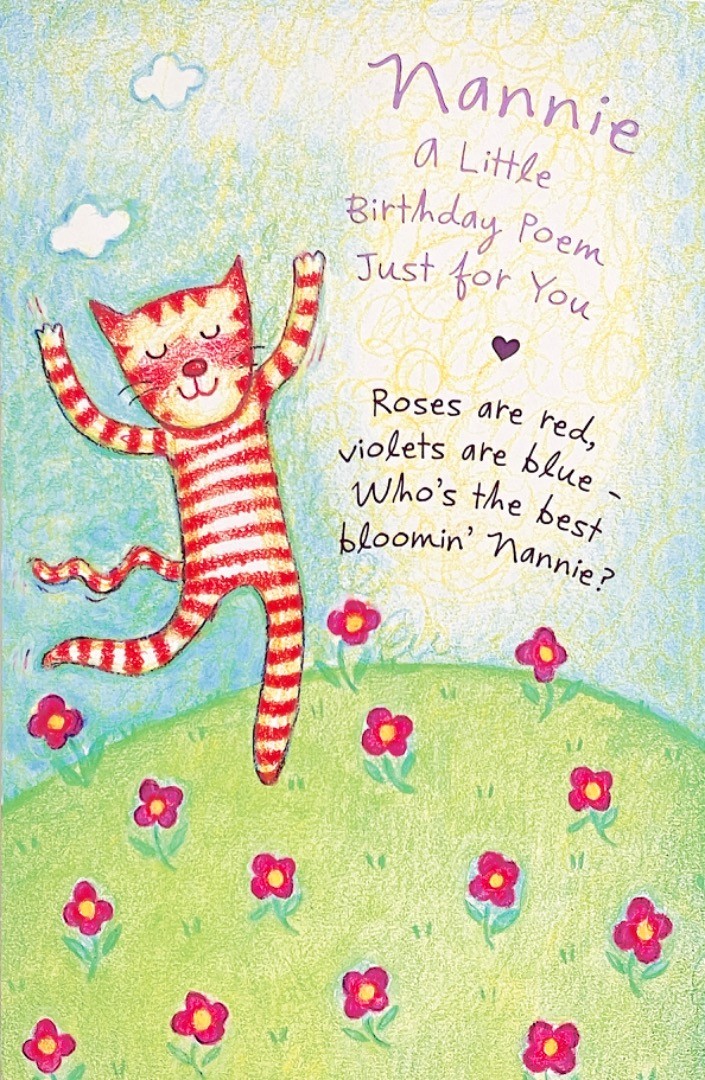 Nannie
A Little
Birthday Poem
Just for You
Roses are red,
violets are blue –
Who's the best
bloomin' Nannie?